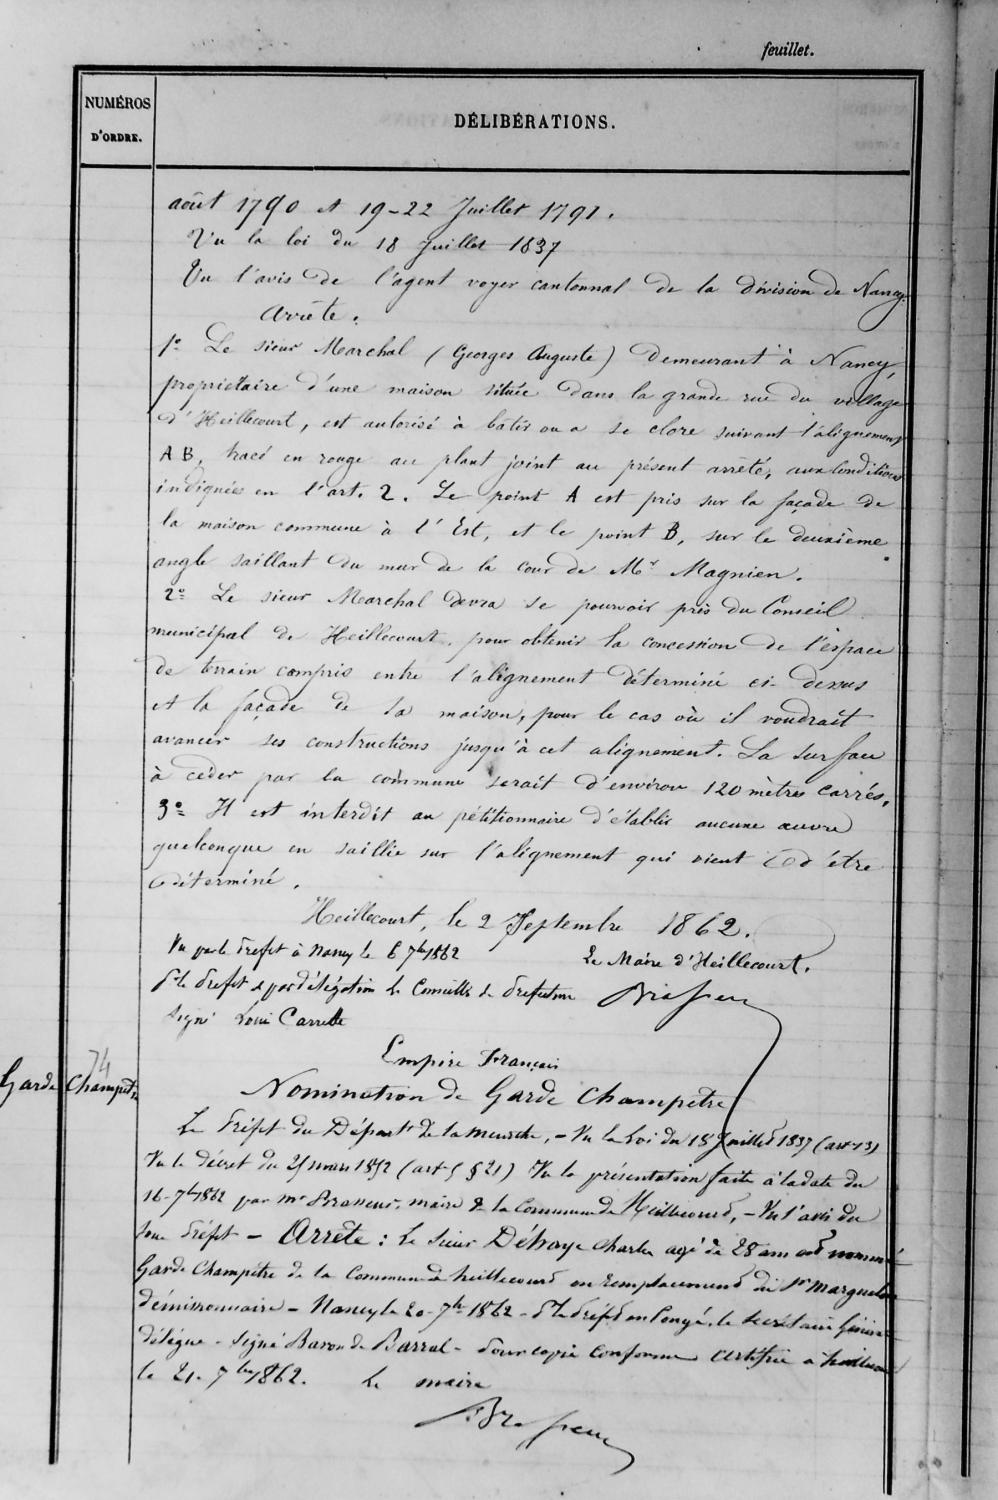 feuillet.
NUMÉROS
D'ORDRE.
DÉLIBÉRATIONS.
août 1790 et 19-22 Juillet 1791.
Vu la loi du 18 Juillet 1837
Vu l'avis de l'agent voyer cantonnal de la division de Nancy.
Arrête.
1° Le sieur Marchal (Georges Auguste) demeurant à Nancy,
propriétaire d'une maison située dans la grande rue du village
d'Heillecourt, est autorisé à bâtir ou a se clore suivant l'alignement
AB, tracé en rouge au plant joint au présent arrêté, aux Conditions
indiquées en l'art. 2. Le point A est pris sur la façade de
la maison commune à l'Est, et le point B, sur le deuxième
angle saillant du mur de la cour de Mr Magnien.
2° Le sieur Marchal devra se pourvoir près du Conseil
municipal de Heillecourt, pour obtenir la concession de l'espace
de terrain compris entre l'alignement déterminé ci-dessus
et la façade de sa maison, pour le cas où il voudrait
avancer ses constructions jusqu'à cet alignement. La surface
à ceder par la commune serait d'environ 120 mètres carrés.
3° Il est interdit au pétitionnaire d'établir aucune œuvre
quelconque en saillie sur l'alignement qui vient d'être
déterminé.
Heillecourt, le 2 Septembre 1862.
Vu par le Préfet à Nancy le 6 7bre 1862
Le Maire d'Heillecourt.
Pr le Préfet & par délégation le Conseiller de Préfecture
Signé Louis Carrelle
Empire Français
74
Garde Champêtre
Nomination de Garde Champêtre
Le Préfet du Départt de la Meurthe, - Vu la Loi du 18 Juillet 1837 (art 13)
Vu le décret du 25 mars 1852 (art 5 § 21) Vu la présentation faite à la date du
16-7bre 1862 par Mr Brasseur, maire de la Commune de Heillecourt, - Vu l'avis du
Sous Préfet - Arrête: Le Sieur Déhaye Charles agé de 28 ans est nommé
Garde Champêtre de la Commune de heillecourt en remplacement du Sr
démissionnaire - Nancy le 20-7bre 1862 - Pr le Préfet en Congé, le Secrétaire Général
délégué - Signé Baron de Barral - Pour copie conforme Certifiée à heillecourt
le 21-7bre 1862. Le maire
Brasseur